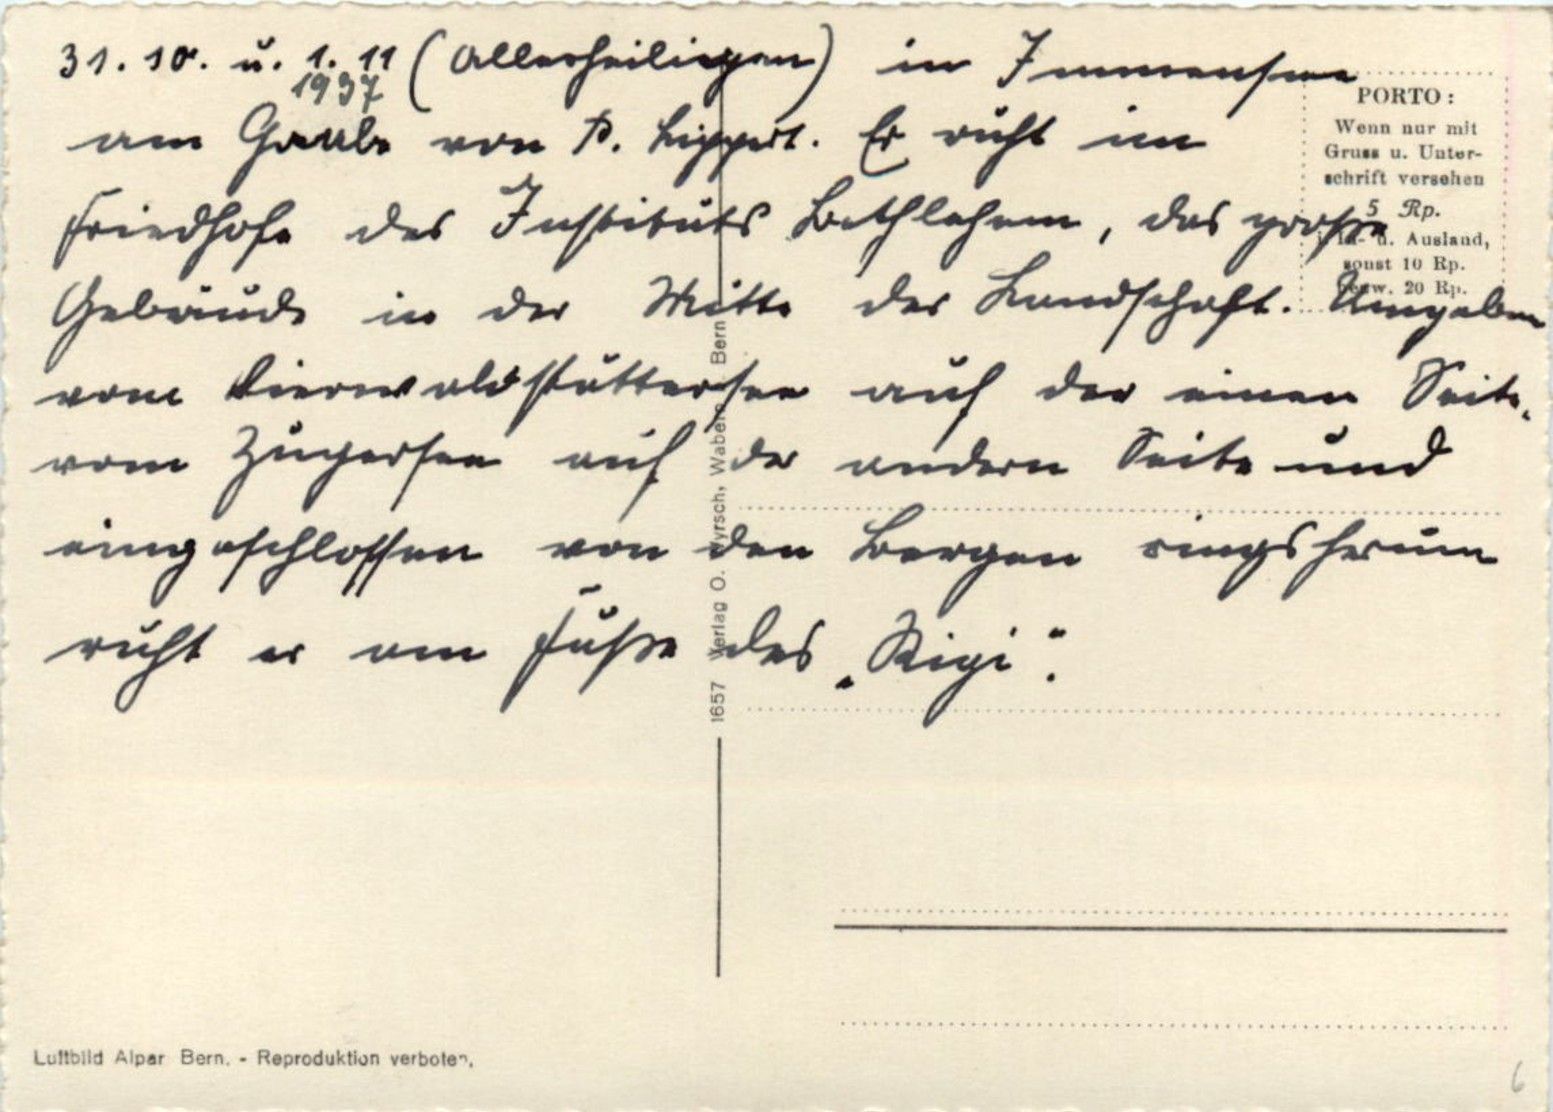 31.10. u. 1.11 (Allerheiligen) in Immensee
1937
am Grabe von P. Lippert. Er ruht im
Friedhofe des Instituts Bethlehem, das große
Gebäude in der Mitte der Landschaft. Umgeben
vom Vierwaldstättersee auf der einen Seite,
vom Zugersee auf der andern Seite und
eingeschlossen von den Bergen ringsherum
ruht er am Fuße des „Rigi".
PORTO:
Wenn nur mit
Gruss u. Unter-
schrift versehen
5 Rp.
in- u. Ausland,
sonst 10 Rp.
bezw. 20 Rp.
1657 Verlag O. Wyrsch, Wabern Bern
Luftbild Alpar Bern. - Reproduktion verboten.
6